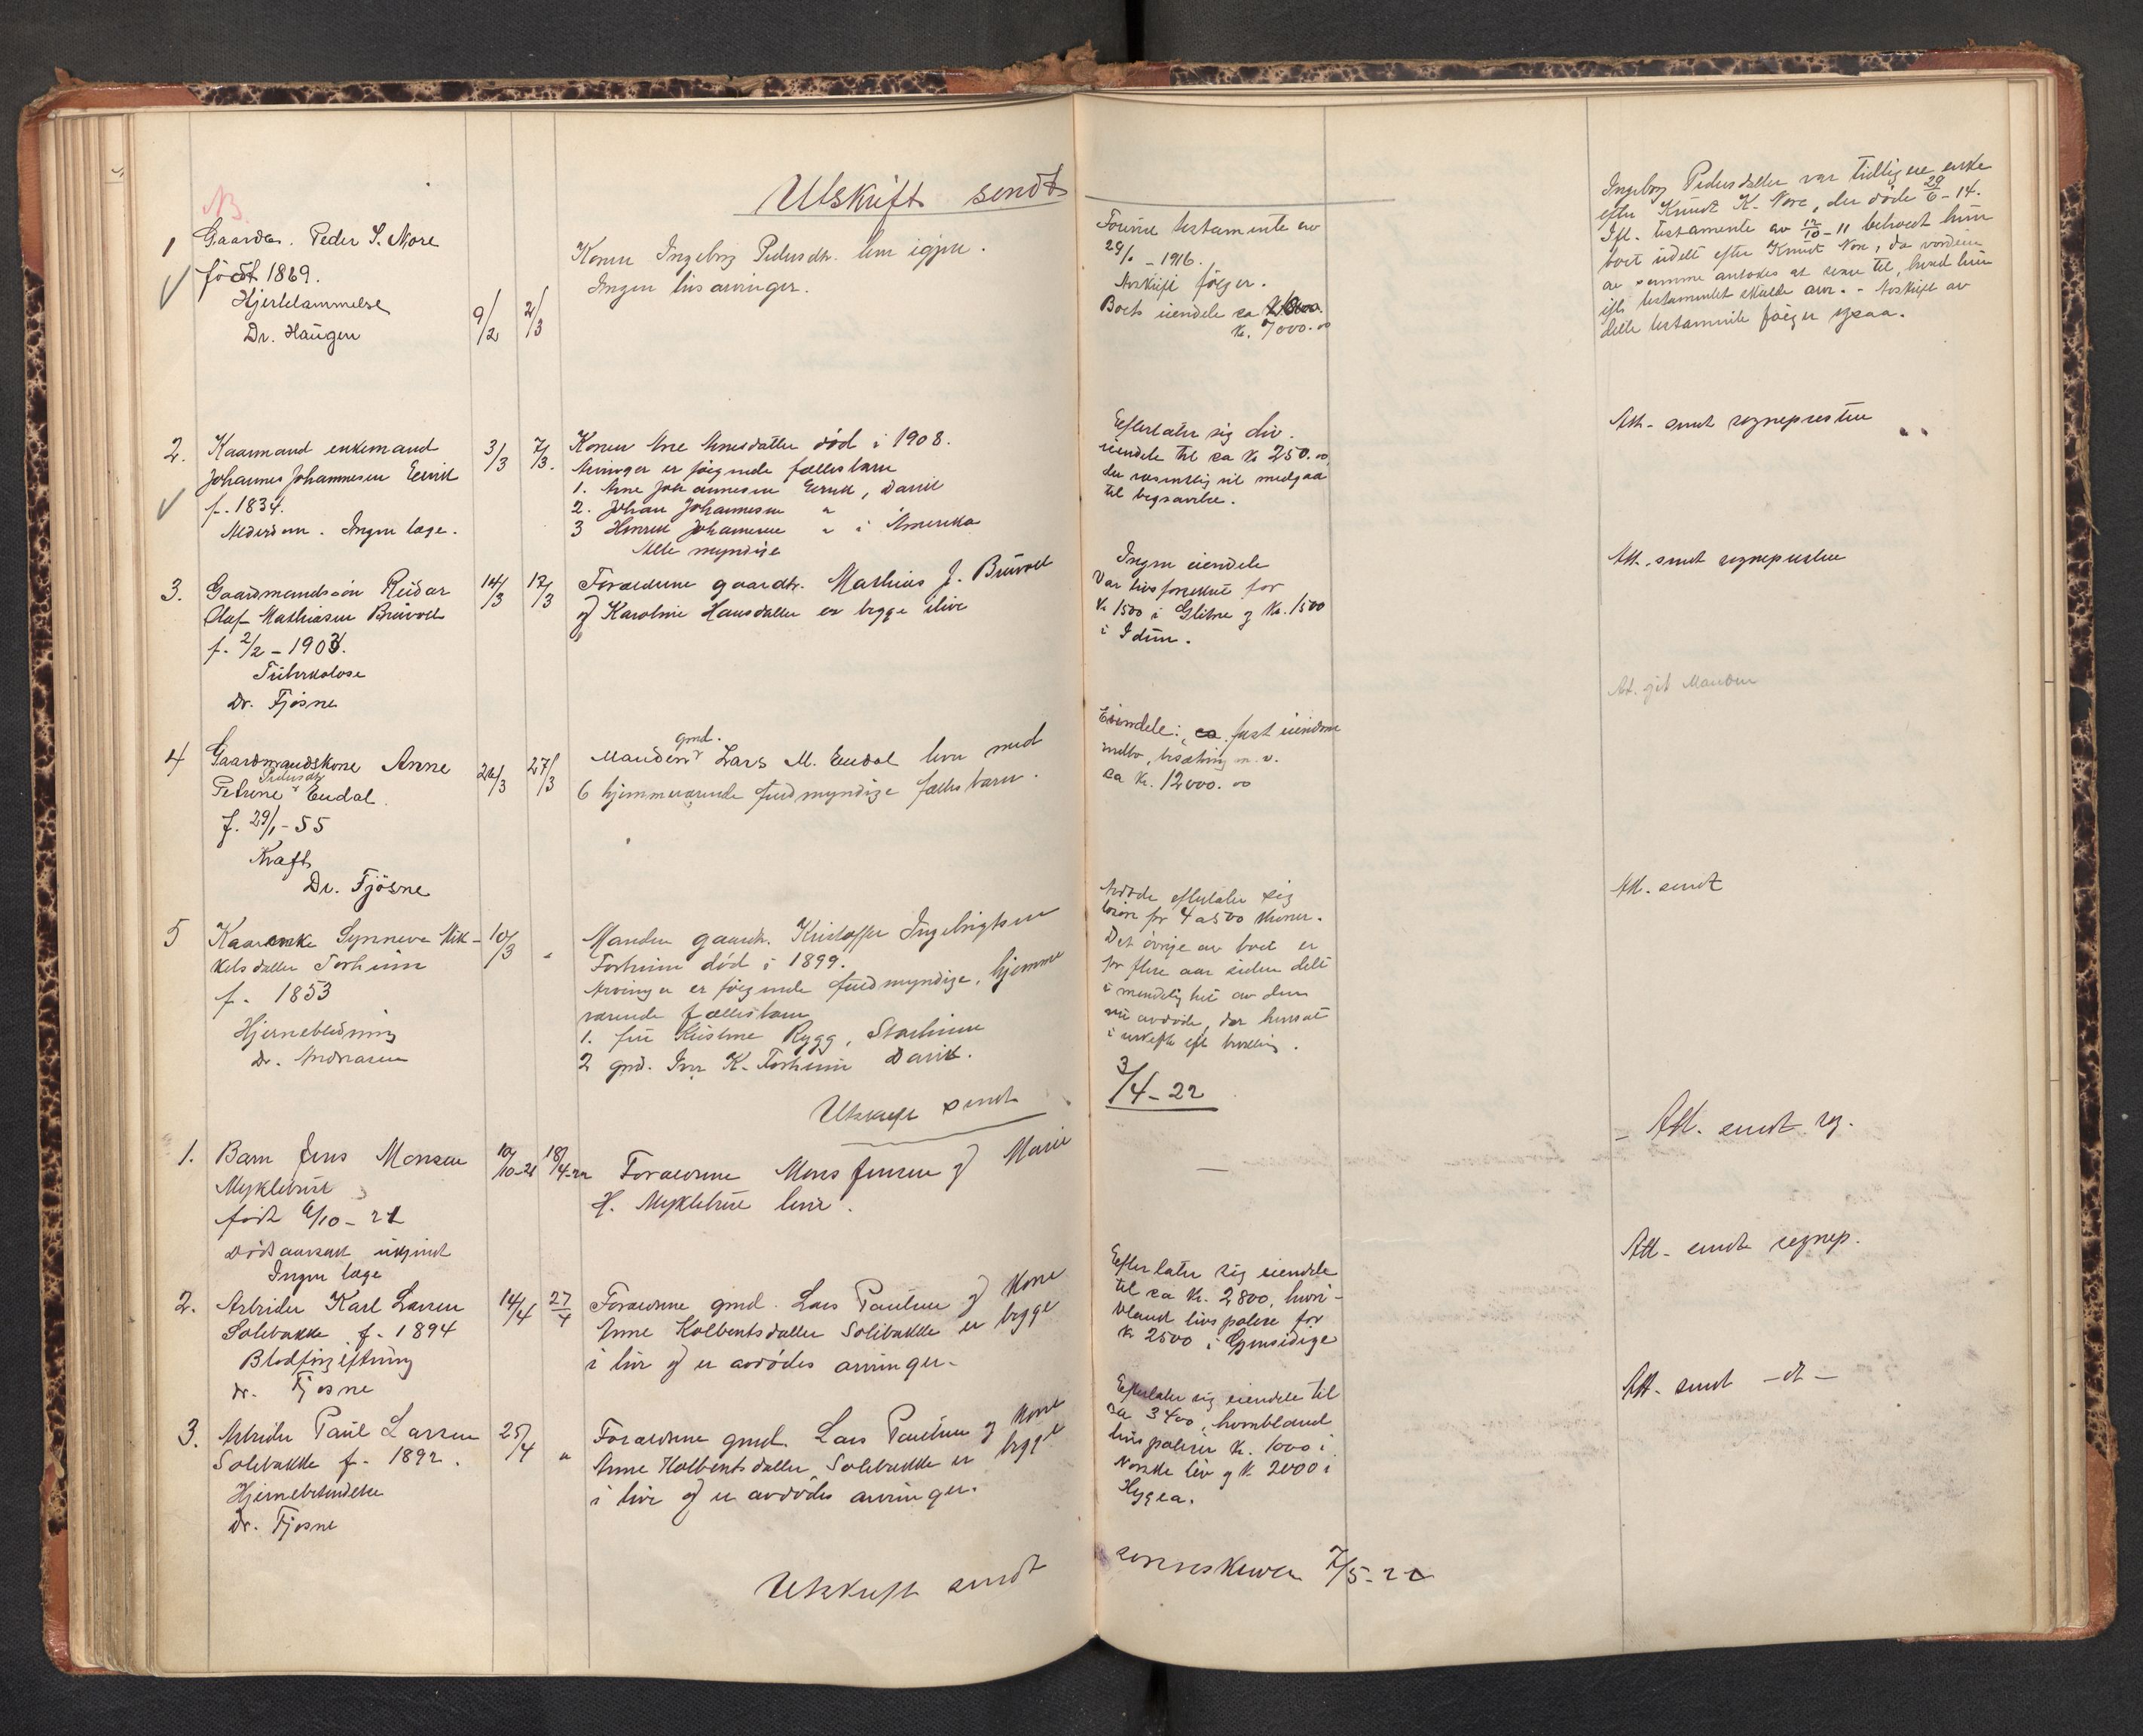 Utskrift sendt
NB.
1 Gaardbr. Peder S. Nore
født 1869.
Hjertelammelse
Dr. Haugen
9/2
2/3
Konen Ingeborg Pedersdtr. lever igjen.
Ingen livsarvinger.
testamente av
29/ - 1916.
Avskrift følger.
Boets eiendele ca
kr. 7000.00
Ingeborg Pedersdatter var tidligere enke
efter Knudt K. Nore, der døde 29/6 - 14.
Ifl. testamente av 12/10 - 11 beholdt hun
boet udelt efter Knudt Nore, da værdien
av samme antokes at svare til, hvad hun
ifl. testamentet skulde arve. - Avskrift av
dette testamente følger ogsaa.
2. Kaarmand enkemand
Johannes Johannesen Eevik
f. 1834.
Alderdom. Ingen læge.
3/3
7/3.
Konen Ane Anesdatter død i 1908.
Arvinger er følgende fællesbarn
1. Arne Johannesen Eevik, Davik
2. Johan Johannesen "
3 Henrik Johannesen " i Amerika
Alle myndige
Efterlater sig div.
eiendele til ca kr 250.00,
der væsentlig vil medgaa
til begravelse.
Att. sendt sognepresten
3. Gaardmandssøn Reidar
Olaf Mathiasen Bruvoll
f. 2/2 - 1903.
Tuberkulose
Dr. Fjøsne
14/3
17/3
Forældrene gaardbr. Mathias J. Bruvoll
og Karoline Hansdatter er begge ilive
Ingen eiendele
Var livsforsikret for
kr 1500 i Glitne og kr. 1500
i Idun.
Att. sendt sognepresten
4 Gaardmandskone Anne
Petrine Pedersdtr Endal.
f. 29/1 - 55
Kræft
Dr. Fjøsne
26/3
27/3
Manden gmd. Lars M. Endal lever med
6 hjemmeværende fuldmyndige fællesbarn.
Eiendele: ca. fast eiendom
indbo, besætning m. v.
ca kr. 12000.00
Att. git Manden
5 Kaarenke Synneva Mik-
kelsdatter Torheim
f. 1853
Hjerneblødning
Dr. Andreasen
10/3
"
Manden gaardb. Kristoffer Ingebrigtsen
Torheim død i 1899.
Arvinger er følgende fuldmyndige, hjemme
værende fællesbarn
1. fru Kristine Rygg, Starheim
2 gmd. Iver K. Torheim Davik.
Avdøde efterlater sig
løsøre for 4 a 500 kroner.
Det øvrige av boet er
for flere aar siden delt
i mindelighet av den
nu avdøde, der hensat
i uskifte efl. bevilling.
Att. sendt
Utskrift sendt
3/4 - 22
1. Barn Jens Monsen
Myklebust
født 6/10 - 21
Dødsaarsak ukjendt
Ingen læge
10/10-21
18/4-22
Forældrene Mons Jensen og Marie
H. Myklebust lever.
—
- Att. sendt sg.
2. Arbeider Karl Larsen
Solibakke f. 1894
Blodforgiftning
dr. Fjøsne
14/4
27/4
Forældrene gmd. Lars Paulsen og kone
Anne Kolbentsdatter Solibakke er begge
i live og er avdødes arvinger.
Efterlater sig eiendele
til ca kr. 2800, hvori-
bland livspolise for
kr 2500 i Gjensidige
Att. sendt sognep.
3. Arbeider Paul Larsen
Solibakke f. 1892.
Hjernebetændelse
Dr. Fjøsne
25/4
"
Forældrene gmd. Lars Paulsen og kone
Anne Kolbentsdatter Solibakke er begge
i live og er avdødes arvinger.
Efterlater sig eiendele til
ca 3400, hvoribland
livspoliser kr. 1000 i
Norske liv og kr 2000 i
Hygea.
Att. sendt - dt -
Utskrift sendt sorenskriveren 7/5 - 22